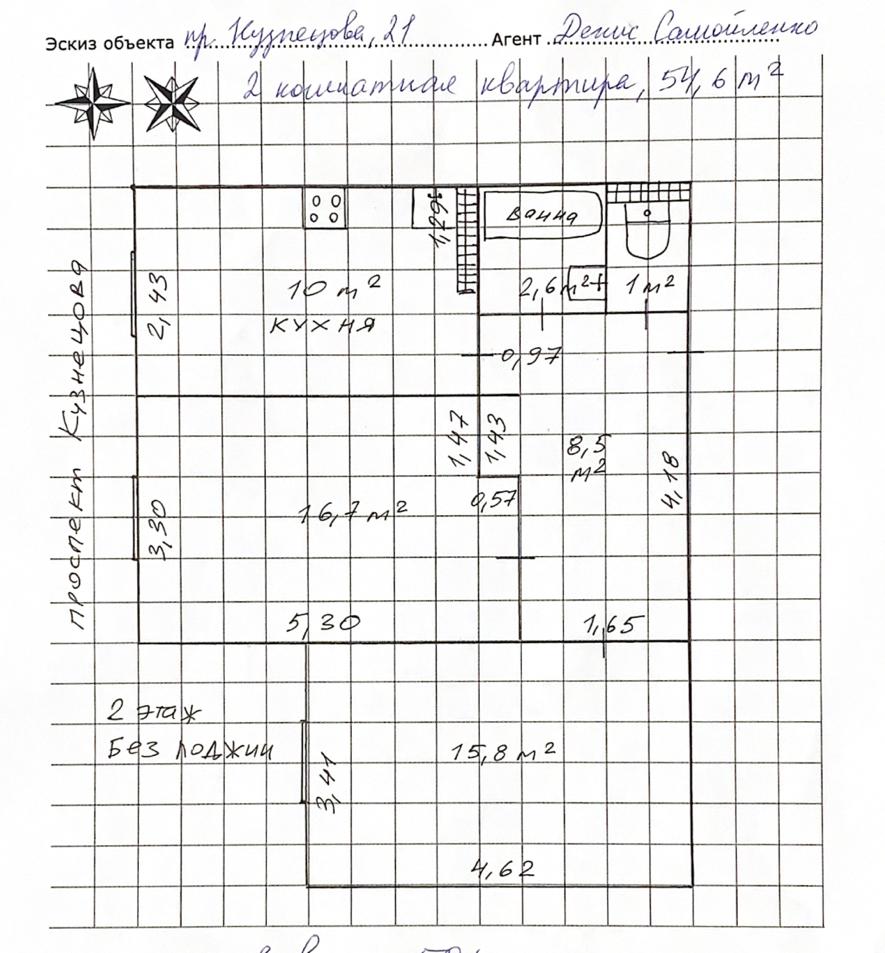 Эскиз объекта пр. Кузнецова, 21 Агент Денис Самойленко
2 комнатная квартира, 54,6 м²
ванна
1,29
2,43
10 м²
кухня
2,6 м²
1 м²
0,97
проспект Кузнецова
1,47
1,43
8,5
м²
4,18
3,30
16,7 м²
0,57
5,30
1,65
2 этаж
Без лоджии
15,8 м²
3,41
4,62